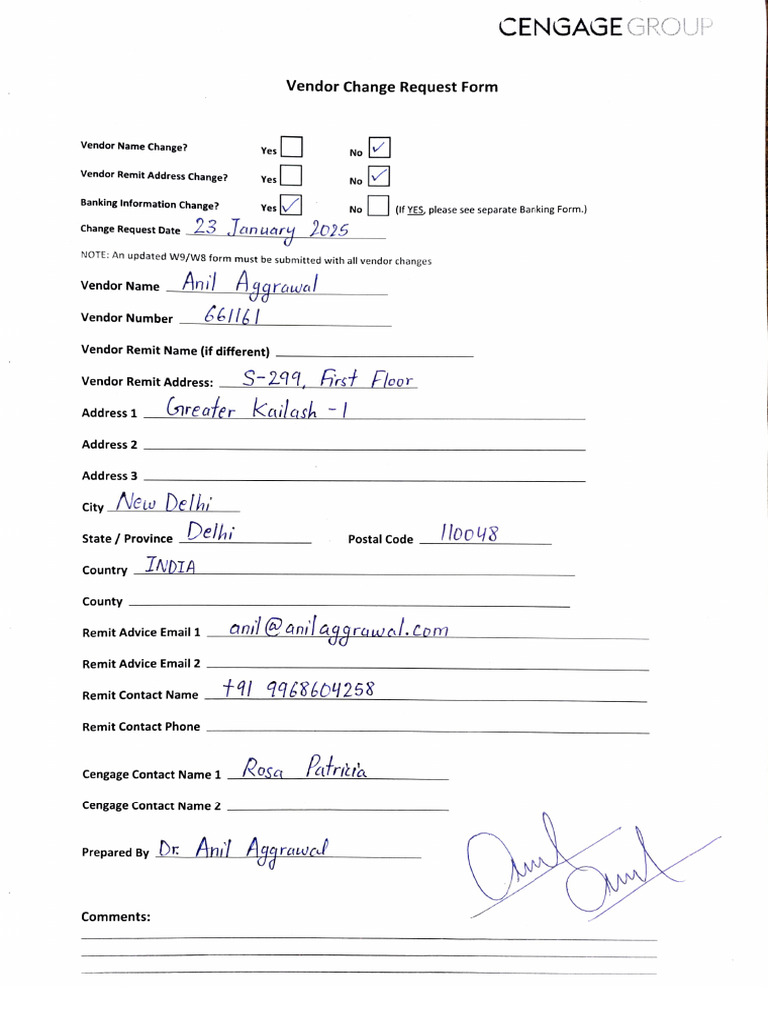 CENGAGE GROUP
Vendor Change Request Form
Vendor Name Change? Yes No ✓
Vendor Remit Address Change? Yes No ✓
Banking Information Change? Yes ✓ No (If YES, please see separate Banking Form.)
Change Request Date 23 January 2025
NOTE: An updated W9/W8 form must be submitted with all vendor changes
Vendor Name Anil Aggrawal
Vendor Number 661161
Vendor Remit Name (if different)
Vendor Remit Address: S-299, First Floor
Address 1 Greater Kailash -1
Address 2
Address 3
City New Delhi
State / Province Delhi Postal Code 110048
Country INDIA
County
Remit Advice Email 1 anil@anilaggrawal.com
Remit Advice Email 2
Remit Contact Name +91 9968604258
Remit Contact Phone
Cengage Contact Name 1 Rosa Patricia
Cengage Contact Name 2
Prepared By Dr. Anil Aggrawal
Anil Anil
Comments: